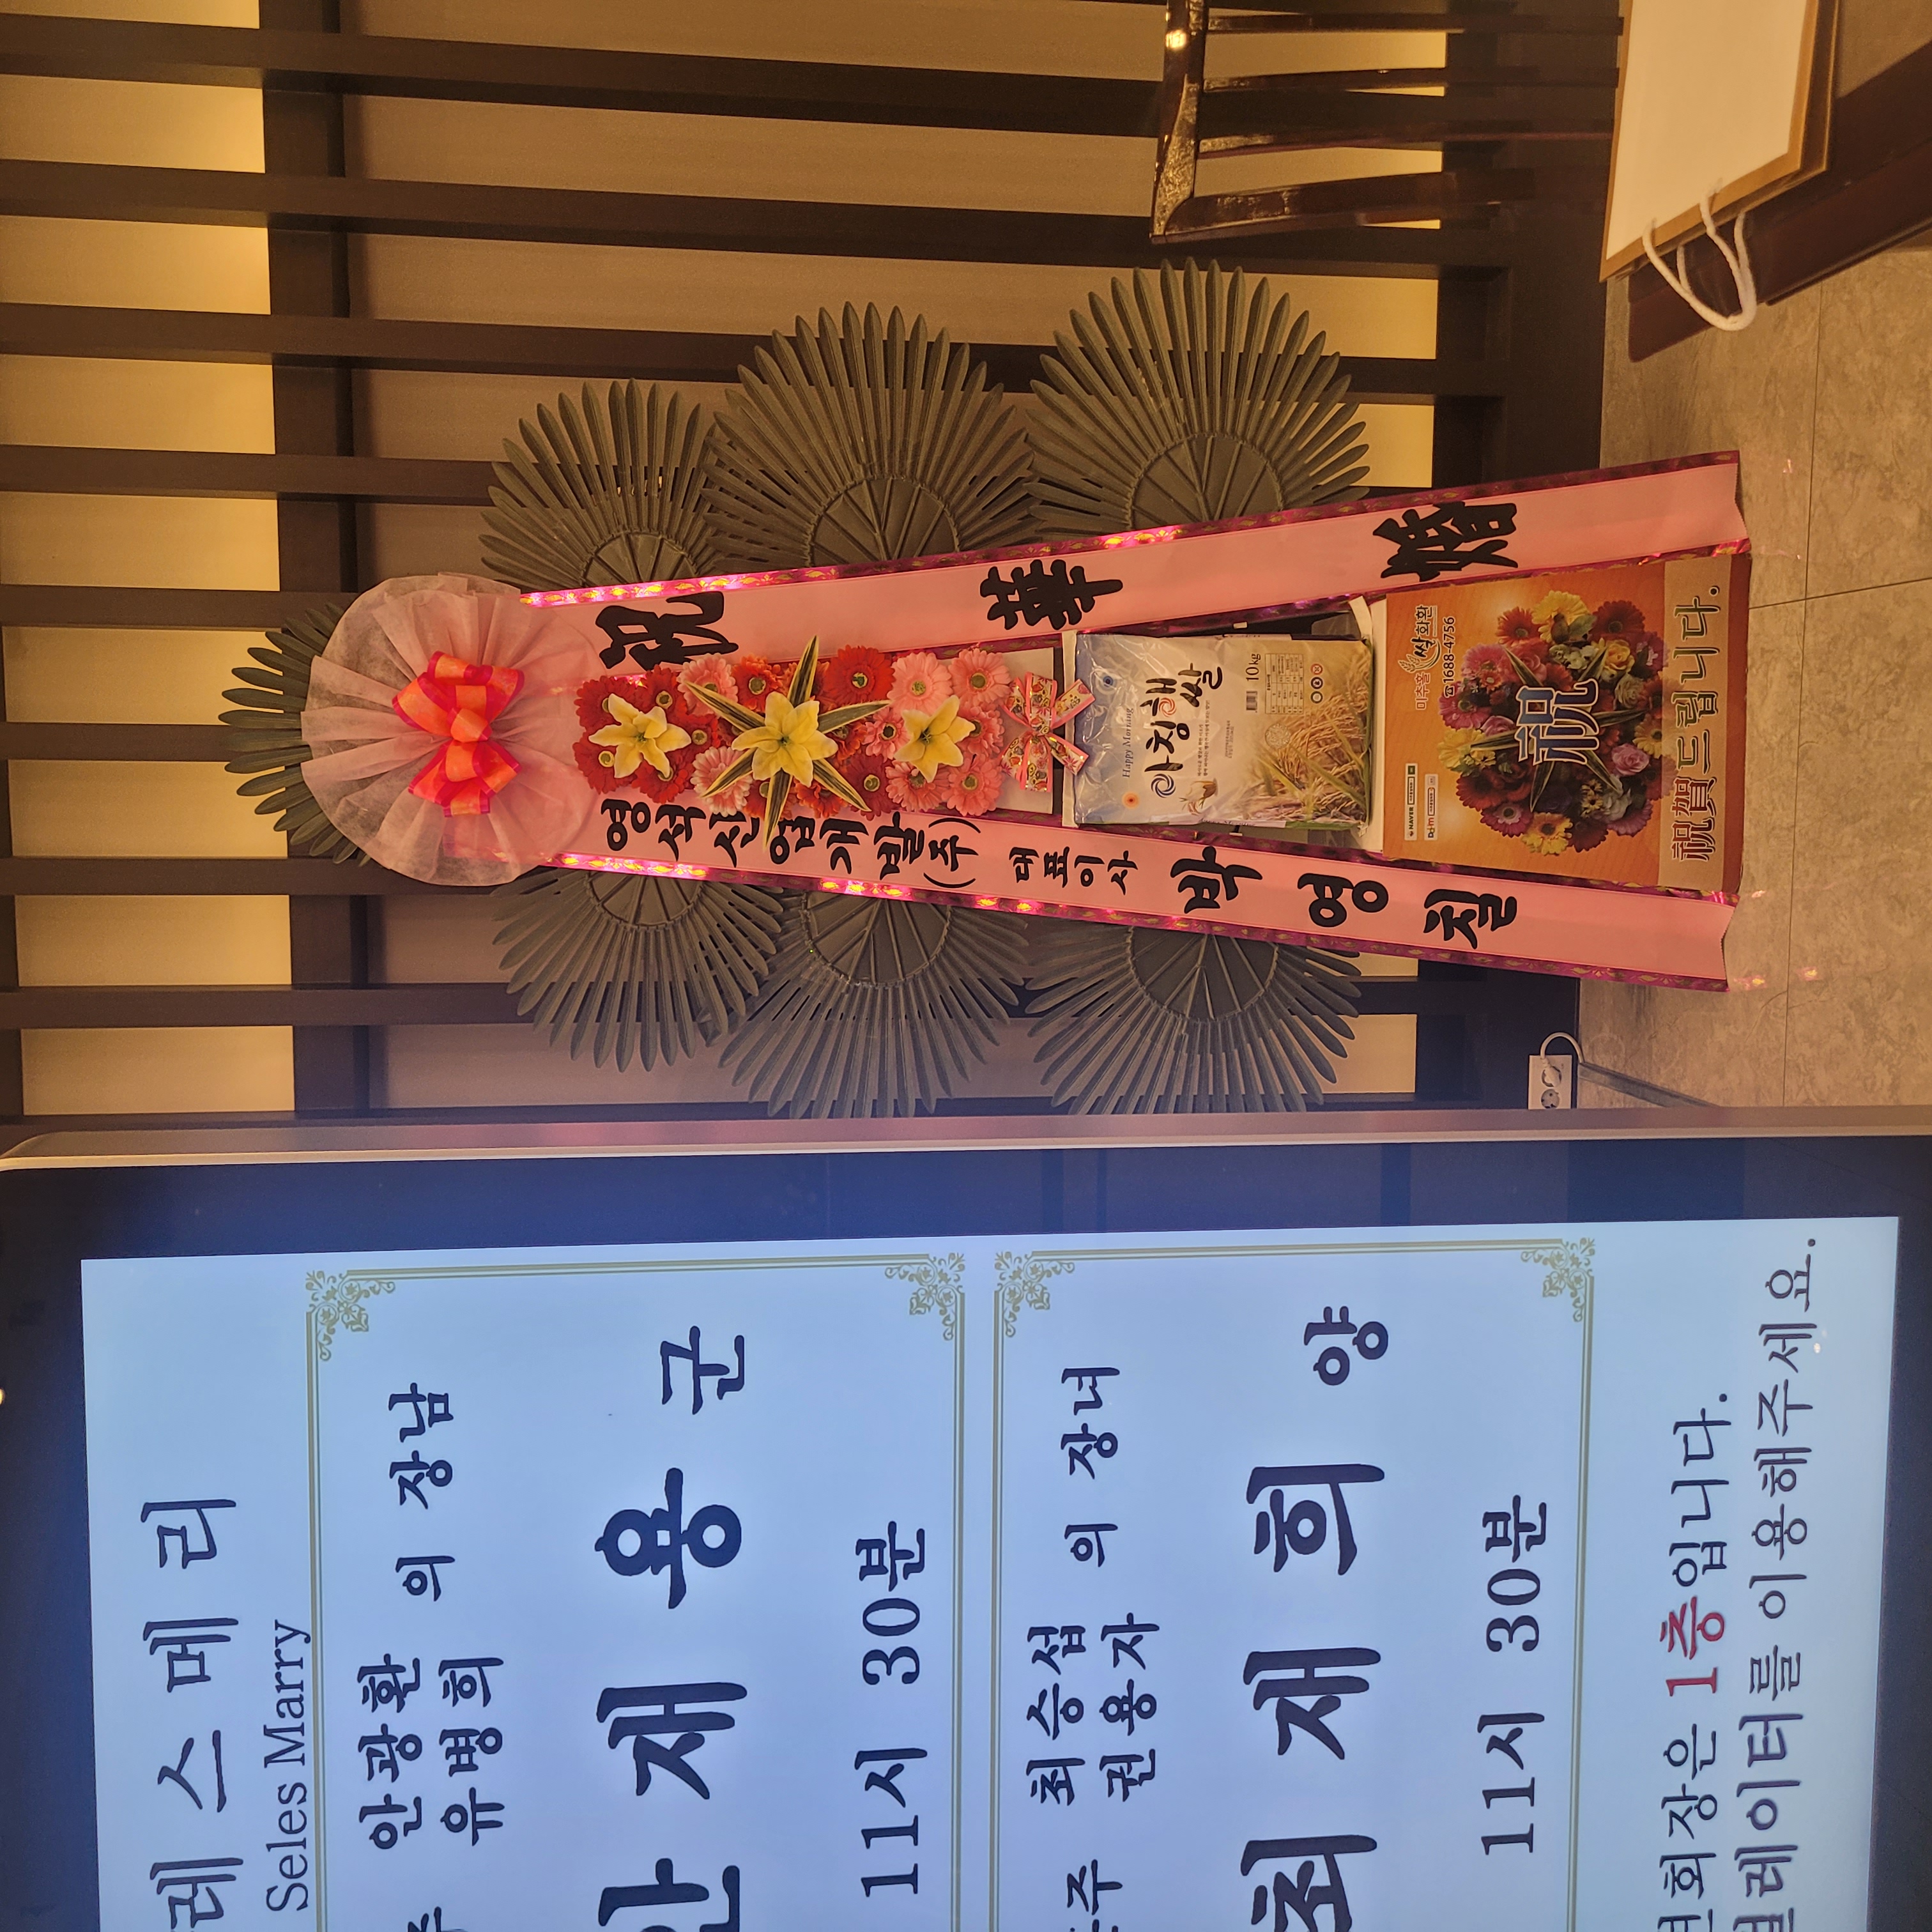 레스메리
Seles Marry
안광환
유병희
의 장남
안재용 군
11시 30분
주 최승섭
권용자
의 장녀
최재희 양
11시 30분
회장은 1층입니다.
레이터를 이용해주세요.
영석산업개발(주) 대표이사 박영칠
祝 華 婚
Happy Morning
아침해쌀
10kg
미추홀 쌀화환
☎1688-4756
NAVER
Daum
祝
祝賀드립니다.